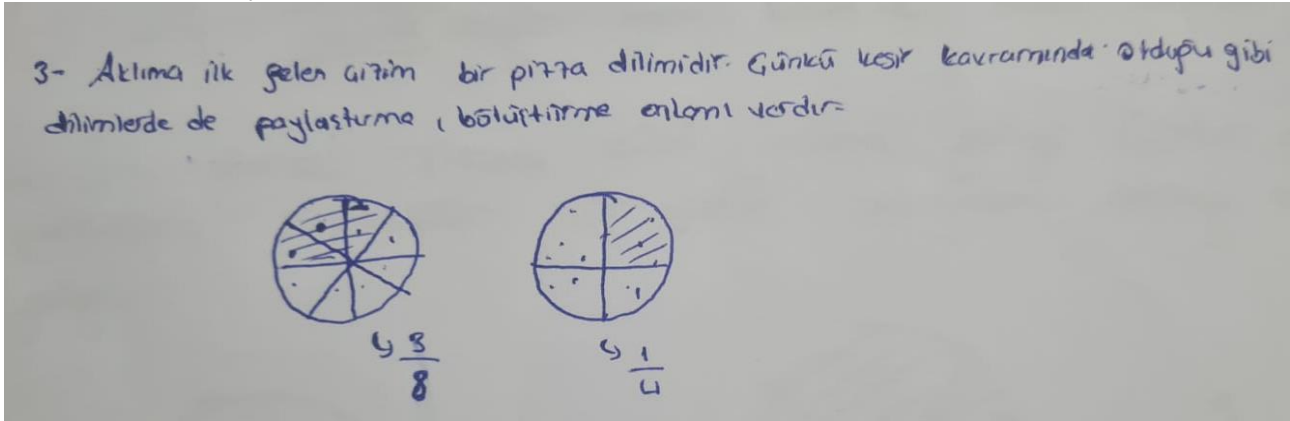 3- Aklıma ilk gelen çizim bir pizza dilimidir. Çünkü kesir kavramında olduğu gibi
dilimlerde de paylaştırma, bölüştürme anlamı vardır.
↳ 3/8
↳ 1/4